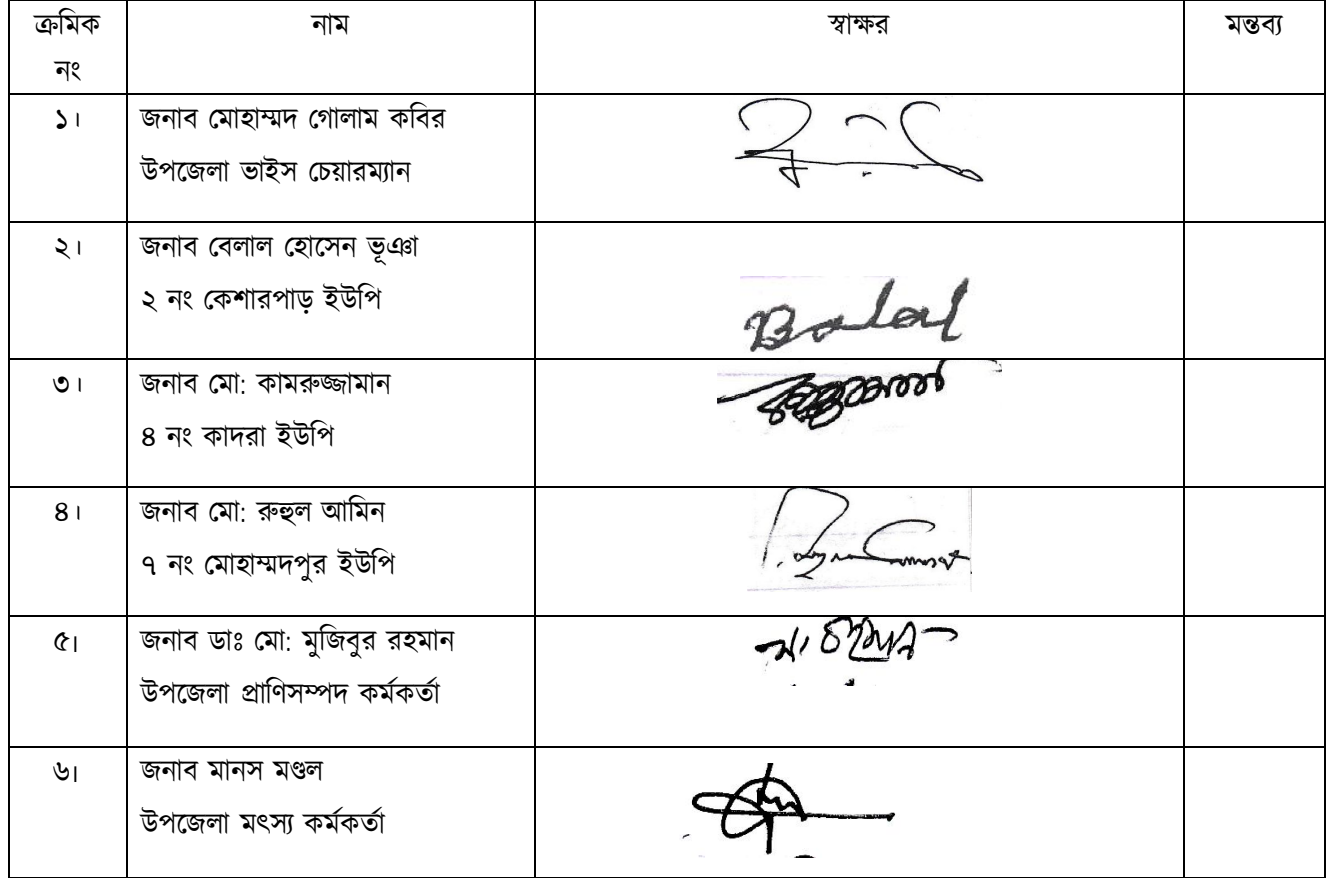 ক্রমিক নং নাম স্বাক্ষর মন্তব্য
১। জনাব মোহাম্মদ গোলাম কবির
উপজেলা ভাইস চেয়ারম্যান
২। জনাব বেলাল হোসেন ভূঞা
২ নং কেশারপাড় ইউপি
Belal
৩। জনাব মো: কামরুজ্জামান
৪ নং কাদরা ইউপি
৪। জনাব মো: রুহুল আমিন
৭ নং মোহাম্মদপুর ইউপি
৫। জনাব ডাঃ মো: মুজিবুর রহমান
উপজেলা প্রাণিসম্পদ কর্মকর্তা
৬। জনাব মানস মণ্ডল
উপজেলা মৎস্য কর্মকর্তা